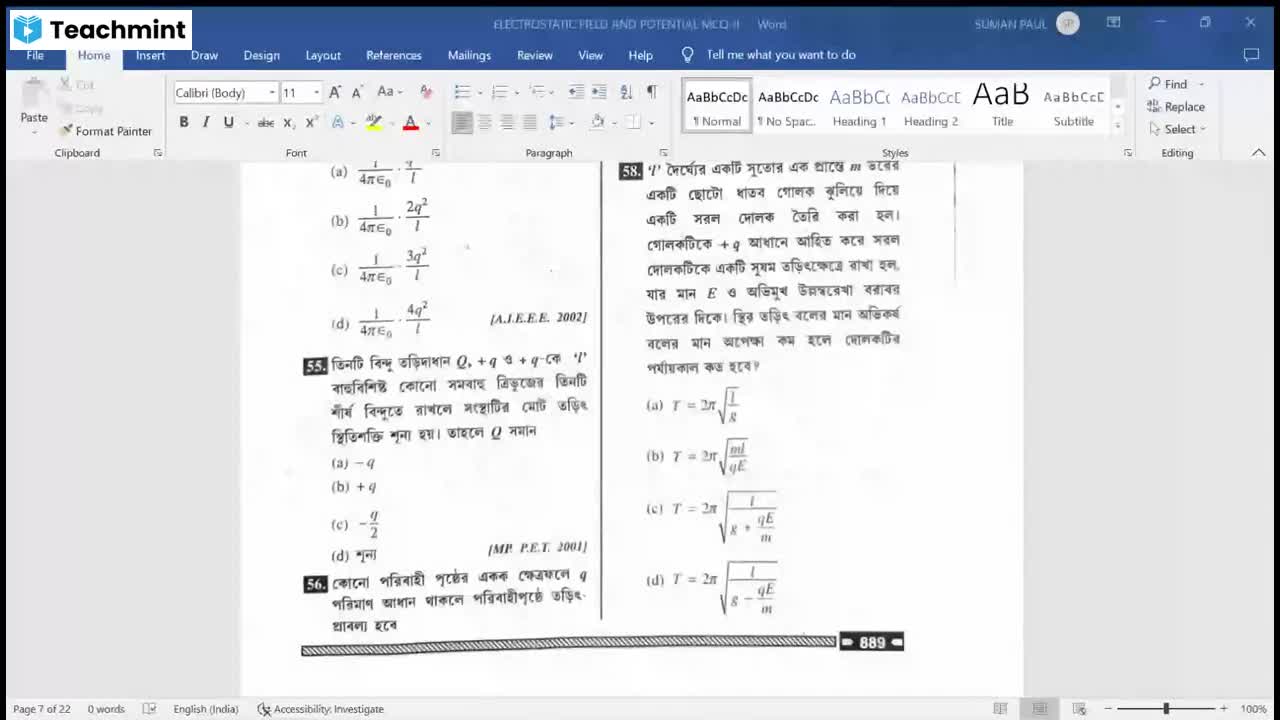 Teachmint
ELECTROSTATIC FIELD AND POTENTIAL MCQ II Word
SUMAN PAUL
SP
File Home Insert Draw Design Layout References Mailings Review View Help Tell me what you want to do
Paste
Cut
Copy
Format Painter
Clipboard
Calibri (Body) 11
Font
Paragraph
AaBbCcDc AaBbCcDc AaBbCc AaBbCcD AaB AaBbCcD
¶ Normal ¶ No Spac... Heading 1 Heading 2 Title Subtitle
Styles
Find
Replace
Select
Editing
(a) 1/4π∈0 · q/l
(b) 1/4π∈0 · 2q²/l
(c) 1/4π∈0 · 3q²/l
(d) 1/4π∈0 · 4q²/l [A.I.E.E.E. 2002]
55. তিনটি বিন্দু তড়িদাধান Q, +q ও +q-কে 'l'
বাহুবিশিষ্ট কোনো সমবাহু ত্রিভুজের তিনটি
শীর্ষ বিন্দুতে রাখলে সংস্থাটির মোট তড়িৎ
স্থিতিশক্তি শূন্য হয়। তাহলে Q সমান
(a) −q
(b) +q
(c) −q/2
(d) শূন্য [MP. P.E.T. 2001]
56. কোনো পরিবাহী পৃষ্ঠের একক ক্ষেত্রফলে q
পরিমাণ আধান থাকলে পরিবাহীপৃষ্ঠে তড়িৎ-
প্রাবল্য হবে
58. 'l' দৈর্ঘ্যের একটি সুতোর এক প্রান্তে m ভরের
একটি ছোটো ধাতব গোলক ঝুলিয়ে দিয়ে
একটি সরল দোলক তৈরি করা হল।
গোলকটিকে +q আধানে আহিত করে সরল
দোলকটিকে একটি সুষম তড়িৎক্ষেত্রে রাখা হল,
যার মান E ও অভিমুখ উল্লম্বরেখা বরাবর
উপরের দিকে। স্থির তড়িৎ বলের মান অভিকর্ষ
বলের মান অপেক্ষা কম হলে দোলকটির
পর্যায়কাল কত হবে?
(a) T = 2π√(l/g)
(b) T = 2π√(ml/qE)
(c) T = 2π√(l/(g + qE/m))
(d) T = 2π√(l/(g − qE/m))
889
Page 7 of 22 0 words English (India) Accessibility: Investigate 100%